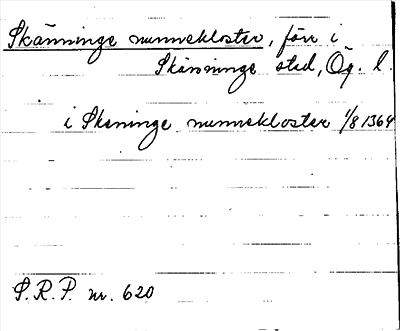 Skänninge nunnekloster, förr i
Skänninge stad, Ög. l.
i Skeninge nunnekloster 1/8 1364
S.R.P. nr. 620